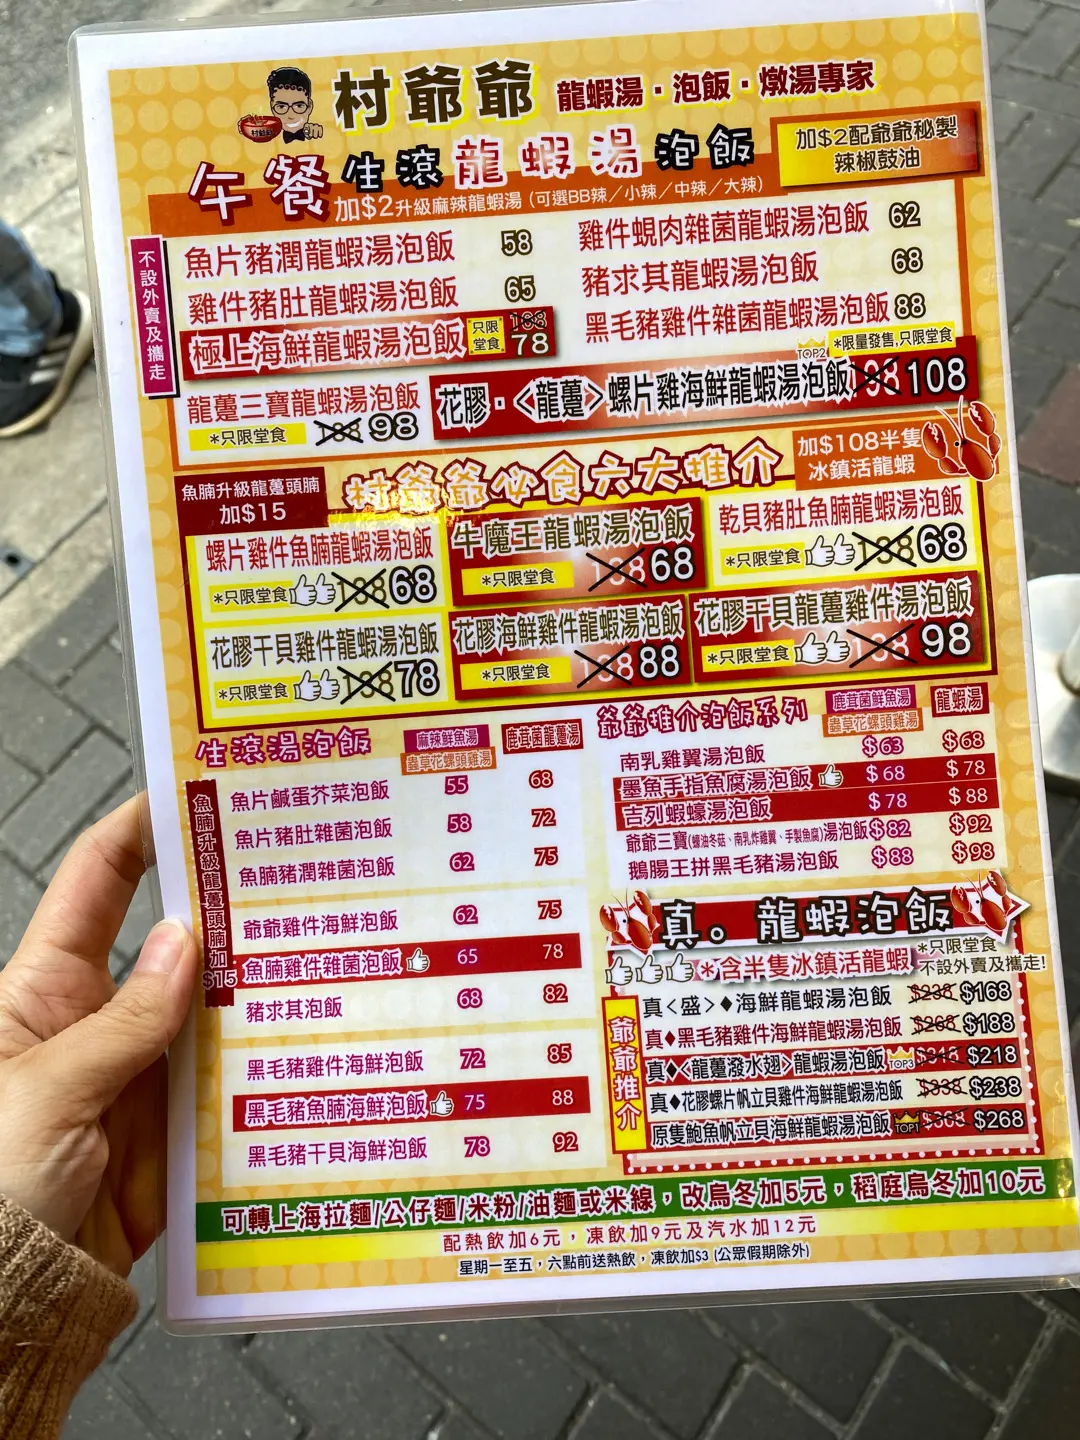 村爺爺
村爺爺 龍蝦湯·泡飯·燉湯專家
午餐 生滾龍蝦湯泡飯
加$2配爺爺秘製
辣椒豉油
加$2升級麻辣龍蝦湯 (可選BB辣/小辣/中辣/大辣)
不設外賣及攜走
魚片豬潤龍蝦湯泡飯 58
雞件蜆肉雜菌龍蝦湯泡飯 62
雞件豬肚龍蝦湯泡飯 65
豬求其龍蝦湯泡飯 68
極上海鮮龍蝦湯泡飯 只限堂食 168 78
黑毛豬雞件雜菌龍蝦湯泡飯 88
TOP2 *限量發售,只限堂食
龍躉三寶龍蝦湯泡飯
*只限堂食 188 98
花膠·<龍躉>螺片雞海鮮龍蝦湯泡飯 198 108
魚腩升級龍躉頭腩
加$15
村爺爺必食六大推介
加$108半隻
冰鎮活龍蝦
螺片雞件魚腩龍蝦湯泡飯
*只限堂食 138 68
牛魔王龍蝦湯泡飯
*只限堂食 138 68
乾貝豬肚魚腩龍蝦湯泡飯
*只限堂食 138 68
花膠干貝雞件龍蝦湯泡飯
*只限堂食 138 78
花膠海鮮雞件龍蝦湯泡飯
*只限堂食 138 88
花膠干貝龍躉雞件湯泡飯
*只限堂食 138 98
生滾湯泡飯
麻辣鮮魚湯
蟲草花螺頭雞湯
鹿茸菌龍躉湯
魚腩升級龍躉頭腩加$15
魚片鹹蛋芥菜泡飯 55 68
魚片豬肚雜菌泡飯 58 72
魚腩豬潤雜菌泡飯 62 75
爺爺雞件海鮮泡飯 62 75
魚腩雞件雜菌泡飯 65 78
豬求其泡飯 68 82
黑毛豬雞件海鮮泡飯 72 85
黑毛豬魚腩海鮮泡飯 75 88
黑毛豬干貝海鮮泡飯 78 92
爺爺推介泡飯系列
鹿茸菌鮮魚湯
蟲草花螺頭雞湯
龍蝦湯
南乳雞翼湯泡飯 $63 $68
墨魚手指魚腐湯泡飯 $68 $78
吉列蝦蠔湯泡飯 $78 $88
爺爺三寶(蠔油冬菇、南乳炸雞翼、手製魚腐)湯泡飯 $82 $92
鵝腸王拼黑毛豬湯泡飯 $88 $98
真。龍蝦泡飯
*含半隻冰鎮活龍蝦
*只限堂食
不設外賣及攜走!
爺爺推介
真<盛>♦海鮮龍蝦湯泡飯 $238 $168
真♦黑毛豬雞件海鮮龍蝦湯泡飯 $268 $188
真♦<龍躉潑水翅>龍蝦湯泡飯 TOP3 $318 $218
真♦花膠螺片帆立貝雞件海鮮龍蝦湯泡飯 $338 $238
原隻鮑魚帆立貝海鮮龍蝦湯泡飯 TOP1 $368 $268
可轉上海拉麵/公仔麵/米粉/油麵或米線,改烏冬加5元,稻庭烏冬加10元
配熱飲加6元,凍飲加9元及汽水加12元
星期一至五,六點前送熱飲,凍飲加$3 (公眾假期除外)